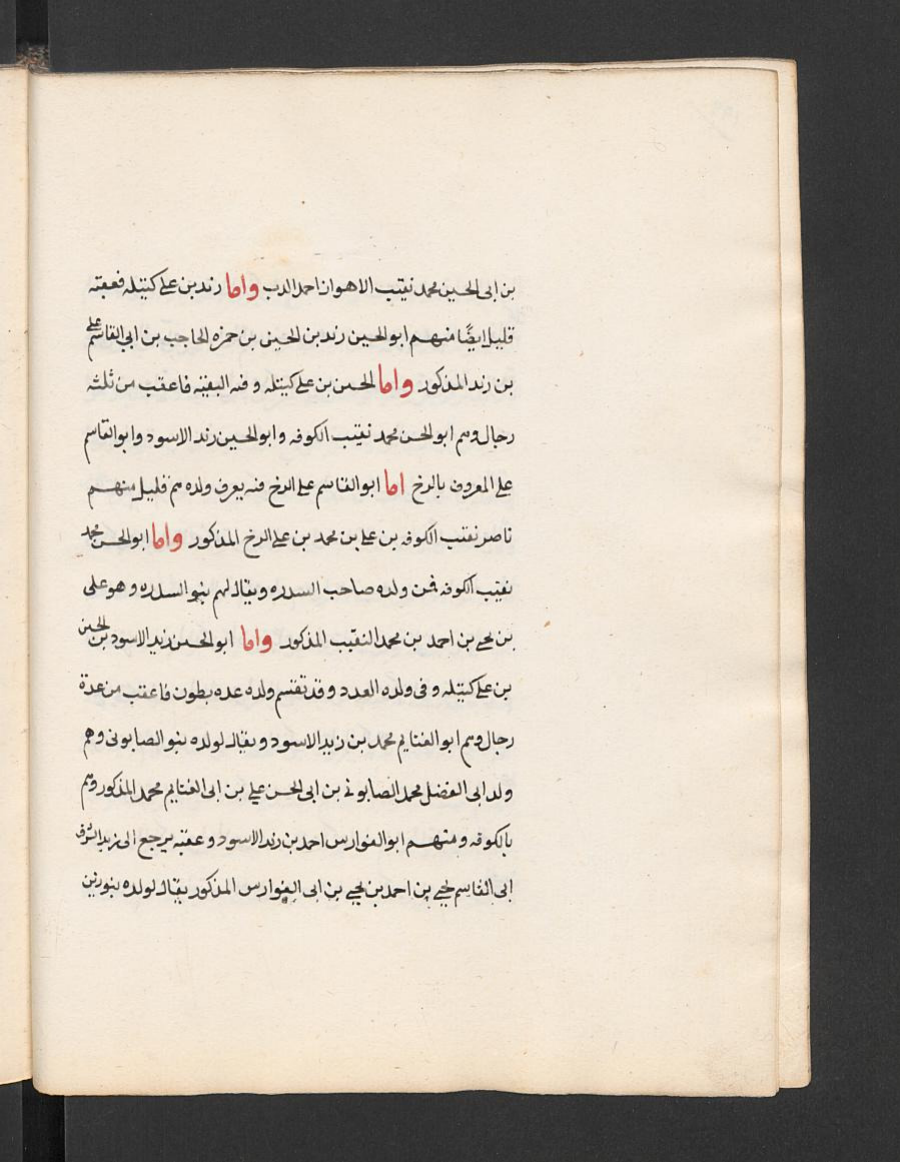 بن ابى الحسين محمد نقيب الاهواز احمد الدب واما زيد بن على كتيله فعقبه
قليل ايضًا منهم ابو الحسين زيد بن الحسين بن حمزه الحاجب بن ابى القاسم على
بن زيد المذكور واما الحسن بن على كتيله وفيه البقيه فاعقب من ثلثه
رجال وهم ابو الحسن محمد نقيب الكوفه وابو الحسين زيد الاسود وابو القاسم
على المعروف بالرخ اما ابو القاسم على الرخ فيه يعرف ولده هم قليل منهم
ناصر نقيب الكوفه بن على بن محمد بن على الرخ المذكور واما ابو الحسن محمد
نقيب الكوفه فمن ولده صاحب السدره ويقال لهم بنو السدره وهو على
بن يحيى بن احمد بن محمد النقيب المذكور واما ابو الحسين زيد الاسود بن الحسن
بن على كتيله وفى ولده العدد وقد تقسم ولده عده بطون فاعقب من عدة
رجال وهم ابو الغنايم محمد بن زيد الاسود ويقال لولده بنو الصابونى وهم
ولد ابى الفضل محمد الصابونى بن ابى الحسن على بن ابى الغنايم محمد المذكور وهم
بالكوفه ومنهم ابو الفوارس احمد بن زيد الاسود وعقبه يرجع الى
ابى القاسم يحيى بن احمد بن يحيى بن ابى الفوارس المذكور يقال لولده بنو